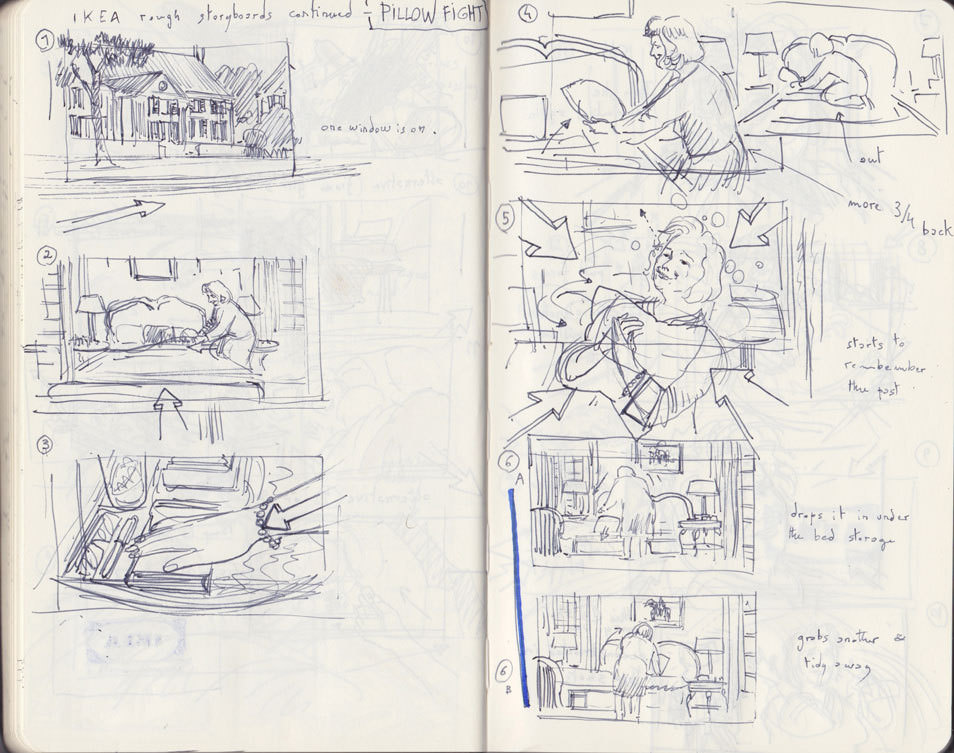 IKEA rough storyboards continued : PILLOW FIGHT
1
one window is on.
2
3
4
out
more 3/4 back
5
starts to
remember
the past
6
A
drops it in under
the bed storage
6
B
grabs another &
tidy away